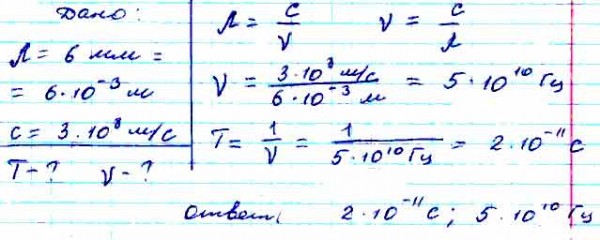 Дано:
λ = 6 мм =
= 6·10⁻³ м
c = 3·10⁸ м/с
T - ? ν - ?
λ = c/ν ν = c/λ
ν = 3·10⁸ м/с / 6·10⁻³ м = 5·10¹⁰ Гц
T = 1/ν = 1/5·10¹⁰ Гц = 2·10⁻¹¹ с
Ответ: 2·10⁻¹¹ с; 5·10¹⁰ Гц